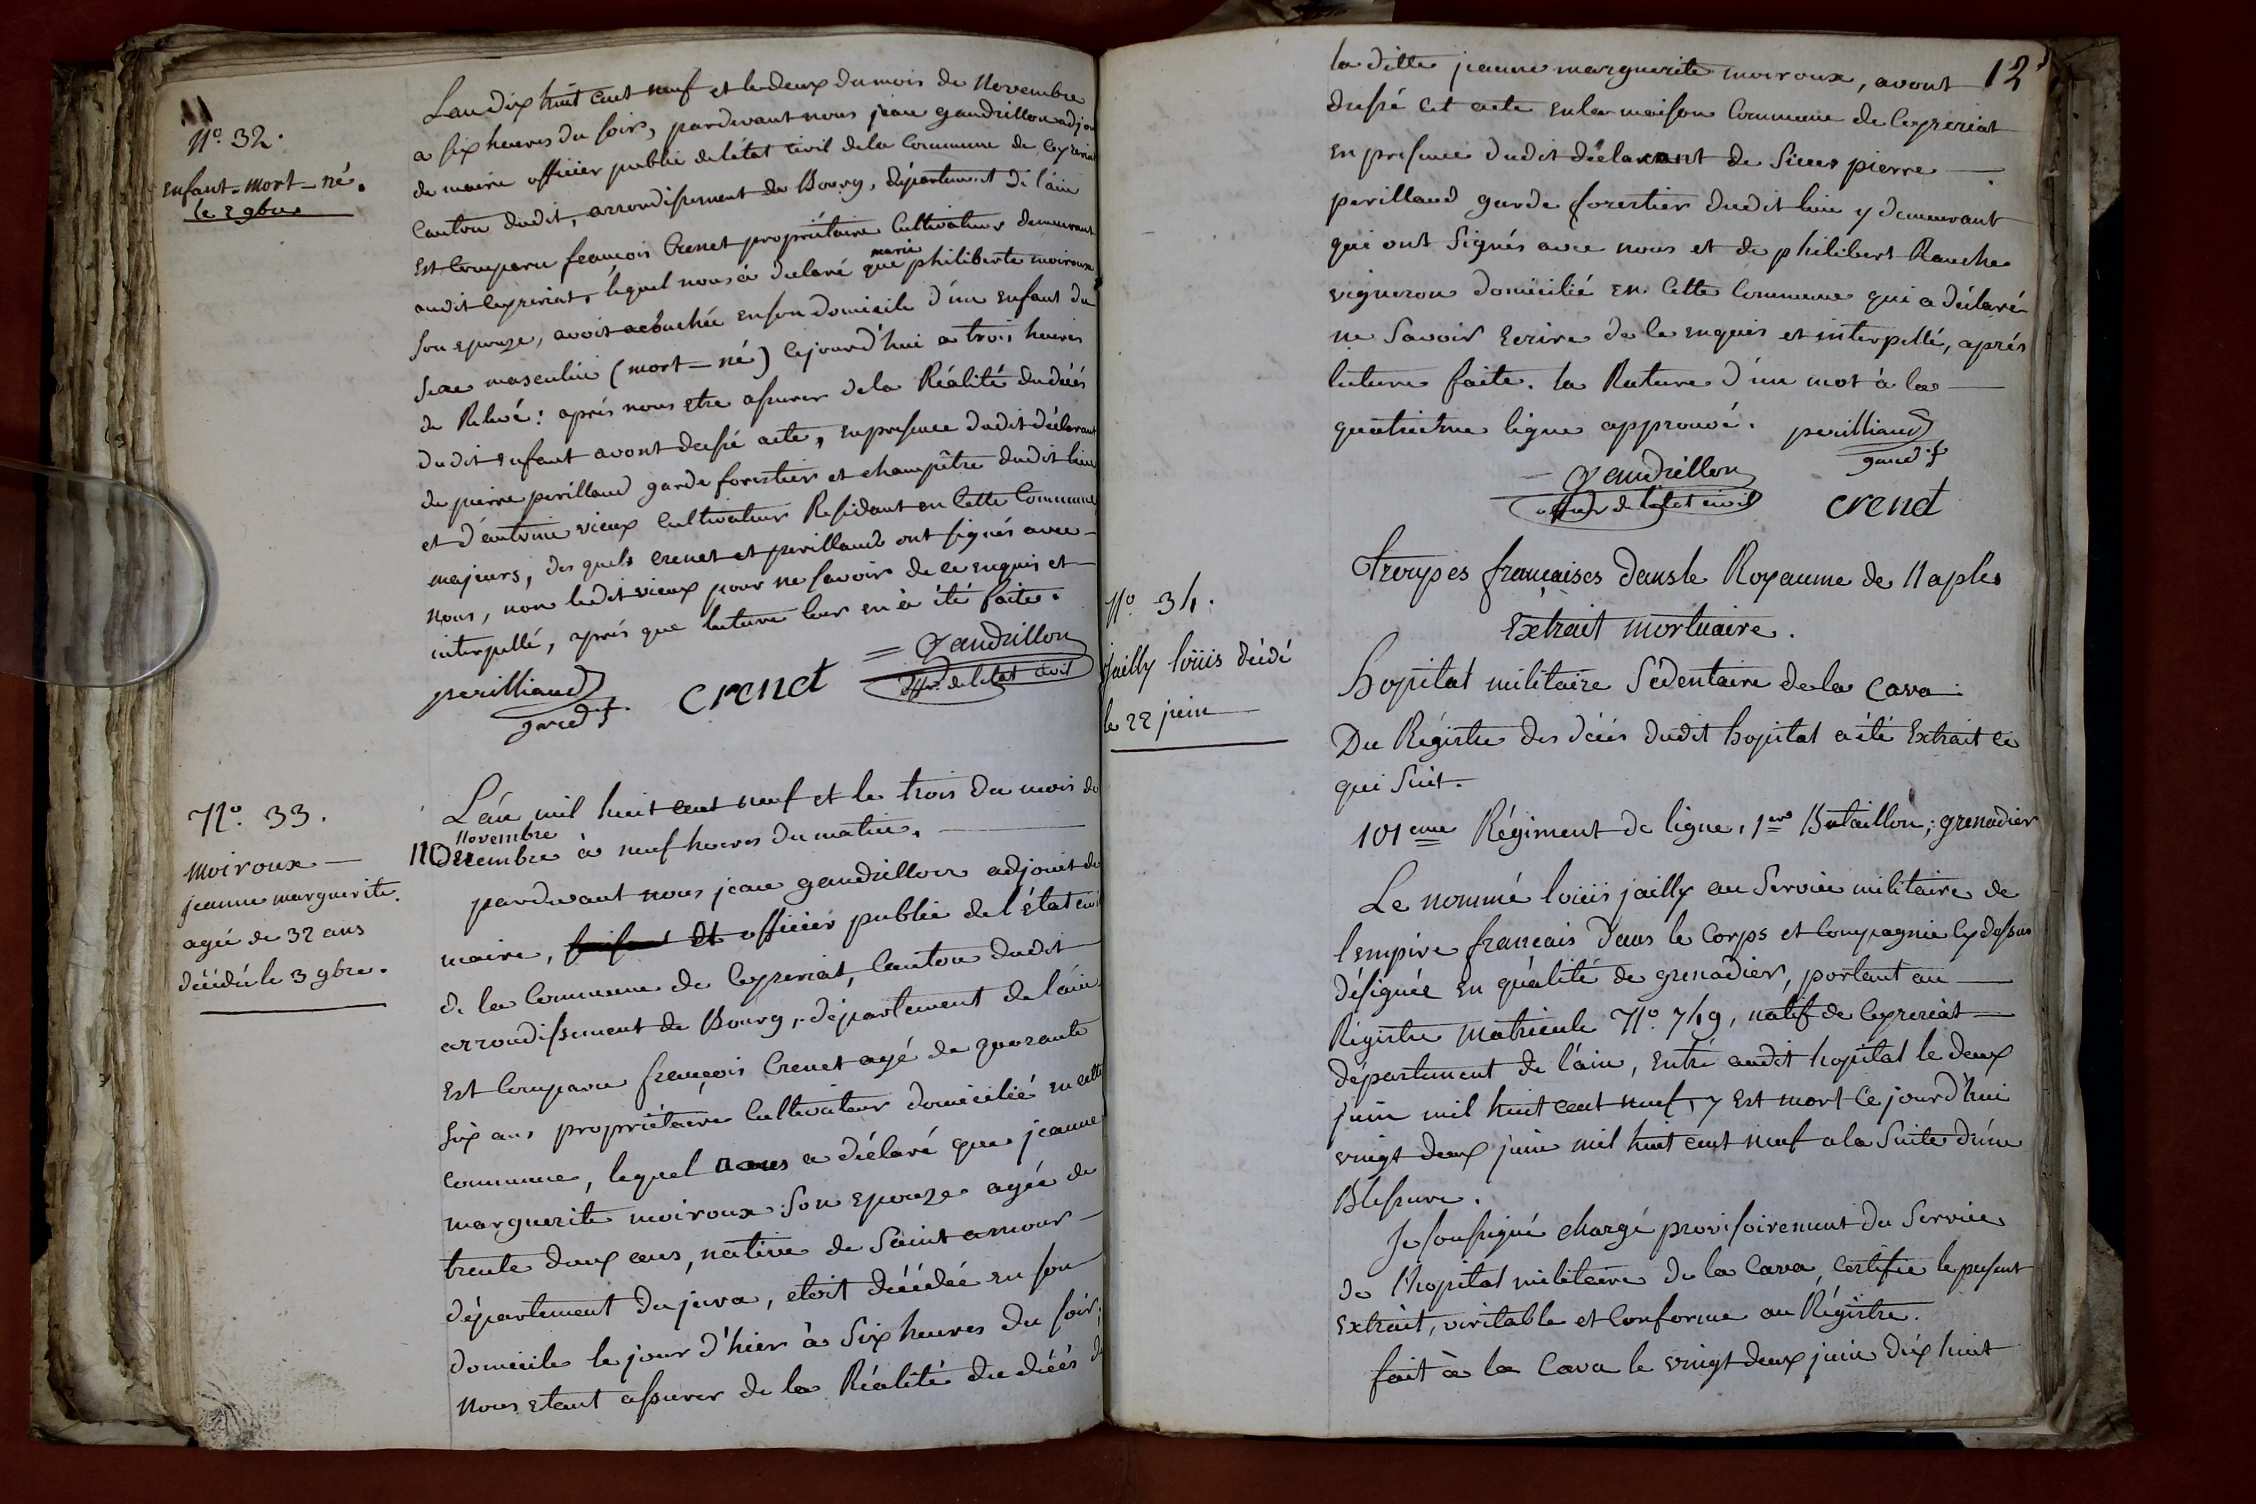 11
N.° 32.
enfant-mort-né.
le 2 9bre
Lan dix huit cent neuf et le deux du mois de Novembre
a six heures du soir, pardevant nous jean gandrillon adjoi
de maire officier public de létat civil de la Commune de Ceyzeriat
Canton dudit, arrondissement de Bourg, département de l'ain
Est Comparu francois Crenet propriétaire Cultivateur demeurant
audit Ceyzeriat, lequel nous a declaré que marie philiberte moiroux
son epouze, avoit acouchée en son domicile d'un enfant du
sexe masculin (mort-né) cejourd'hui a trois heures
de Relevé: aprés nous etre assurer de la Réalité du décés
dudit enfant avont dressé acte, en presence dudit déclarant
de pierre perilland garde forestier et champêtre dudit lieu
et d'antoine vieux Cultivateur Residant en Cette Commune
majeurs, des quels crenet et perilland ont signés avec
nous, non ledit vieux pour ne savoir de ce enquis et
interpellé, aprés que lecture leur en à été faite.
perilliand
gard f.
crenet
= Gandrillon
offer. de létat civil
N.° 33.
moiroux
jeanne marguerite.
agée de 32 ans
décédé le 3 9bre.
L'an mil huit cent neuf et le trois du mois de
Novembre
Decembre à neuf heures du matin.
pardevant nous jean gandrillon adjoint de
maire, et officier public de l'état civil
de la Commune de Ceyzeriat, Canton dudit
arrondissement de Bourg, département de l'ain
Est Comparu françois Crenet agé de quarante
six ans propriétaire Cultivateur domicilié en cette
Commune, lequel nous a déclaré que jeanne
marguerite moiroux son epouze agée de
trente deux ans, native de Saint amour
département du jura, etoit décédée en son
domicile le jour d'hier à six heures du soir,
Nous etant assurer de la Réalité du décés de
12
la ditte jeanne marguerite moiroux, avont
dressé cet acte en la maison Commune de Ceyzeriat
en presence dudit déclarant de sieur pierre
perilland garde forestier dudit lieu y demeurant
qui ont signés avec nous et de philibert Rauche
vigneron domicilié en Cette Commune qui a déclaré
ne savoir Ecrire de ce enquis et interpellé, aprés
lecture faite. la Rature d'un mot à la
quatrième ligne approuvé.
perilliand
gard f
Gandrillon
officier de l'état civil
crenet
N.° 34.
Jailly loüis décédé
le 22 juin
Troupes françaises dans le Royaume de Naples
Extrait mortuaire.
hopital militaire Sédentaire de la Cava.
Du Régistre des décés dudit hopital a été Extrait ce
qui Suit.
101 eme Régiment de ligne, 1er Bataillon; grenadier
Le nommé loüis jailly au Service militaire de
l'empire francais dans le Corps et Compagnie Cy dessus
désignée en quàlité de grenadier, portant au
Régistre matricule N.° 749, natif de Ceyzeriat
département de l'ain, entré audit hopital le deux
juin mil huit cent neuf, y Est mort Ce jourd'hui
vingt deux juin mil huit cent neuf a la Suite d'une
Blessure.
Je soussigné chargé provisoirement du Service
de l'hopital militaire de la Cava, certifie le present
extrait, véritable et Conforme au Régistre.
fait à la Cava le vingt deux juin dix huit